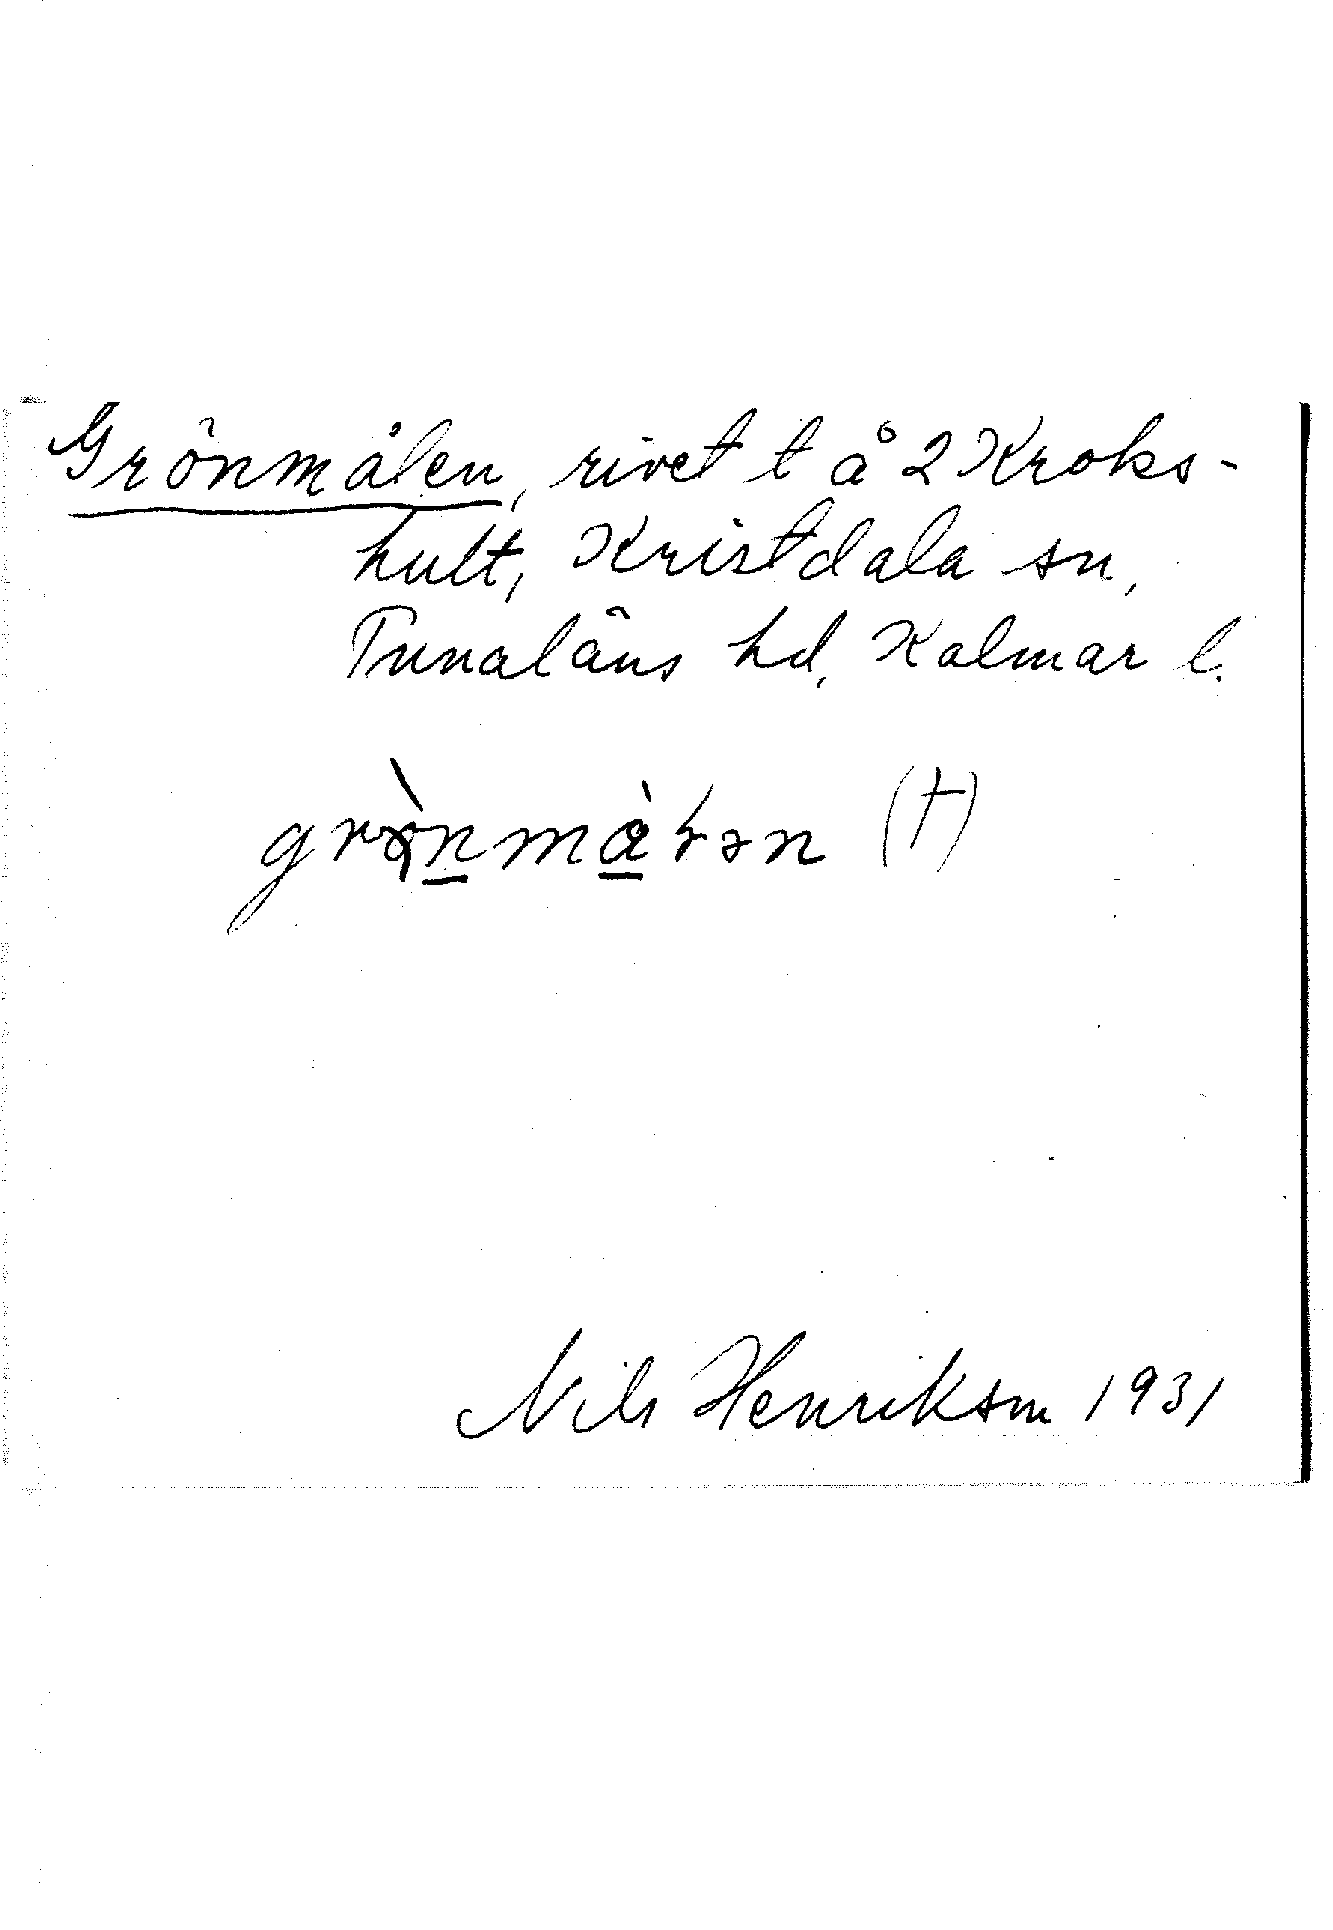 Grönmålen, rivet t å 2 Kroks-
hult, Kristdala sn,
Tunaläns hd, Kalmar l.
(†)
Nils Henriksson 1931